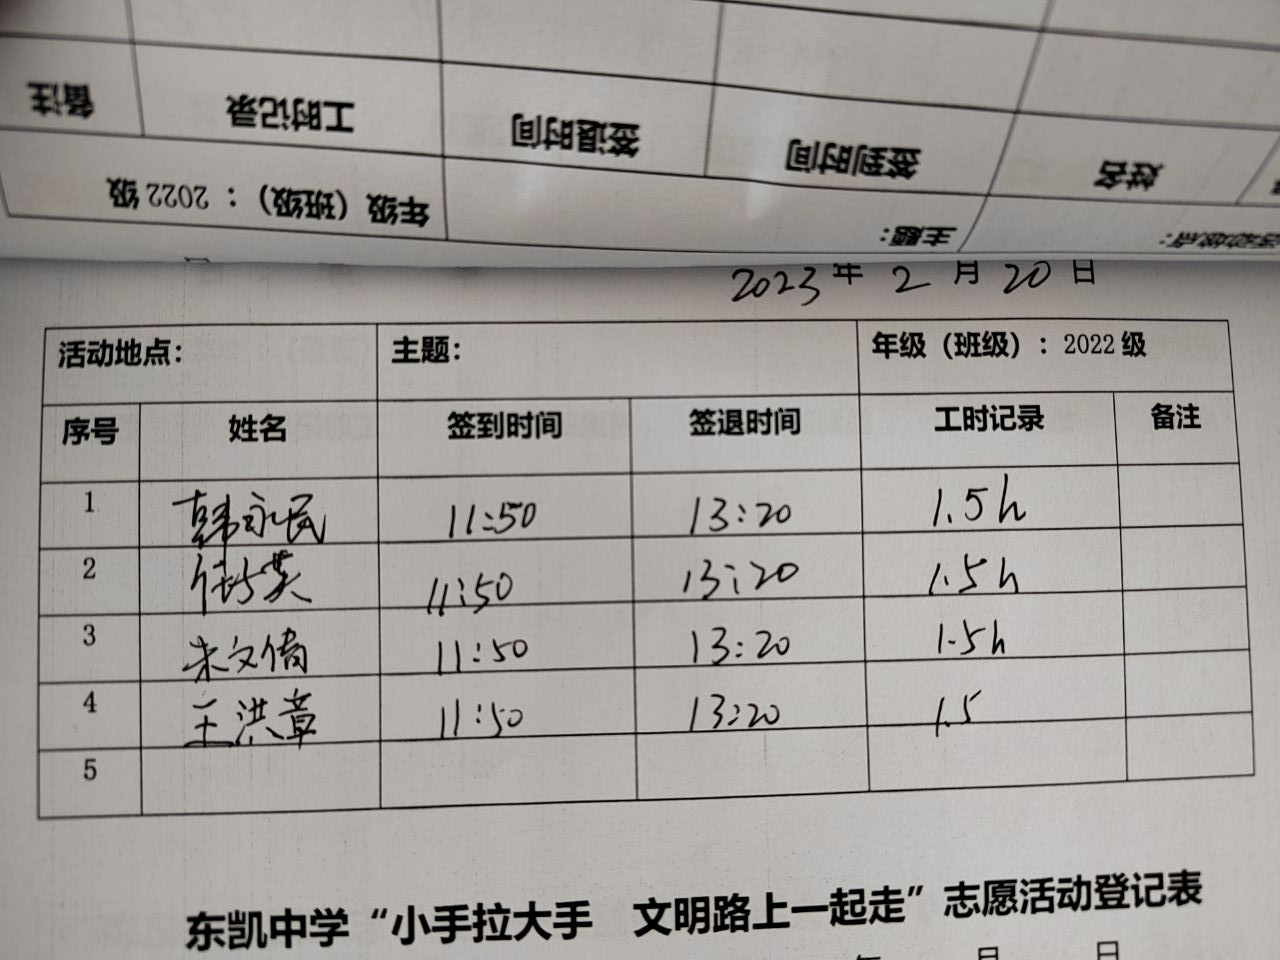 备注 工时记录 签退时间 签到时间 姓名
年级（班级）：2022级 主题： 活动地点：
2023年2月20日
活动地点： 主题： 年级（班级）：2022级
序号 姓名 签到时间 签退时间 工时记录 备注
1 韩永民 11:50 13:20 1.5h
2 11:50 13:20 1.5h
3 朱文倩 11:50 13:20 1.5h
4 王洪章 11:50 13:20 1.5
5
东凯中学“小手拉大手 文明路上一起走”志愿活动登记表
年 月 日